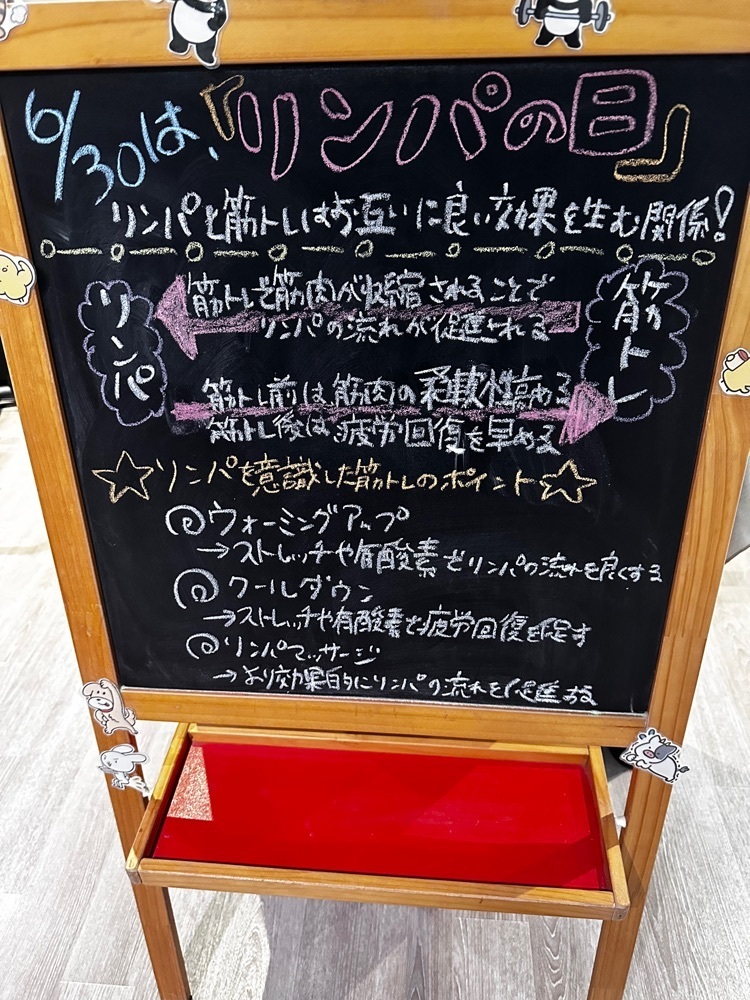 6/30は、『リンパの日』
リンパと筋トレはお互いに良い効果を生む関係!
リンパ
筋トレで筋肉が収縮されることで
リンパの流れが促進される
筋トレ
筋トレ前は、筋肉の柔軟性高める
筋トレ後は、疲労回復を早める
☆リンパを意識した筋トレのポイント☆
◎ウォーミングアップ
→ストレッチや有酸素でリンパの流れを良くする
◎クールダウン
→ストレッチや有酸素で疲労回復を促す
◎リンパマッサージ
→より効果的にリンパの流れを促進する